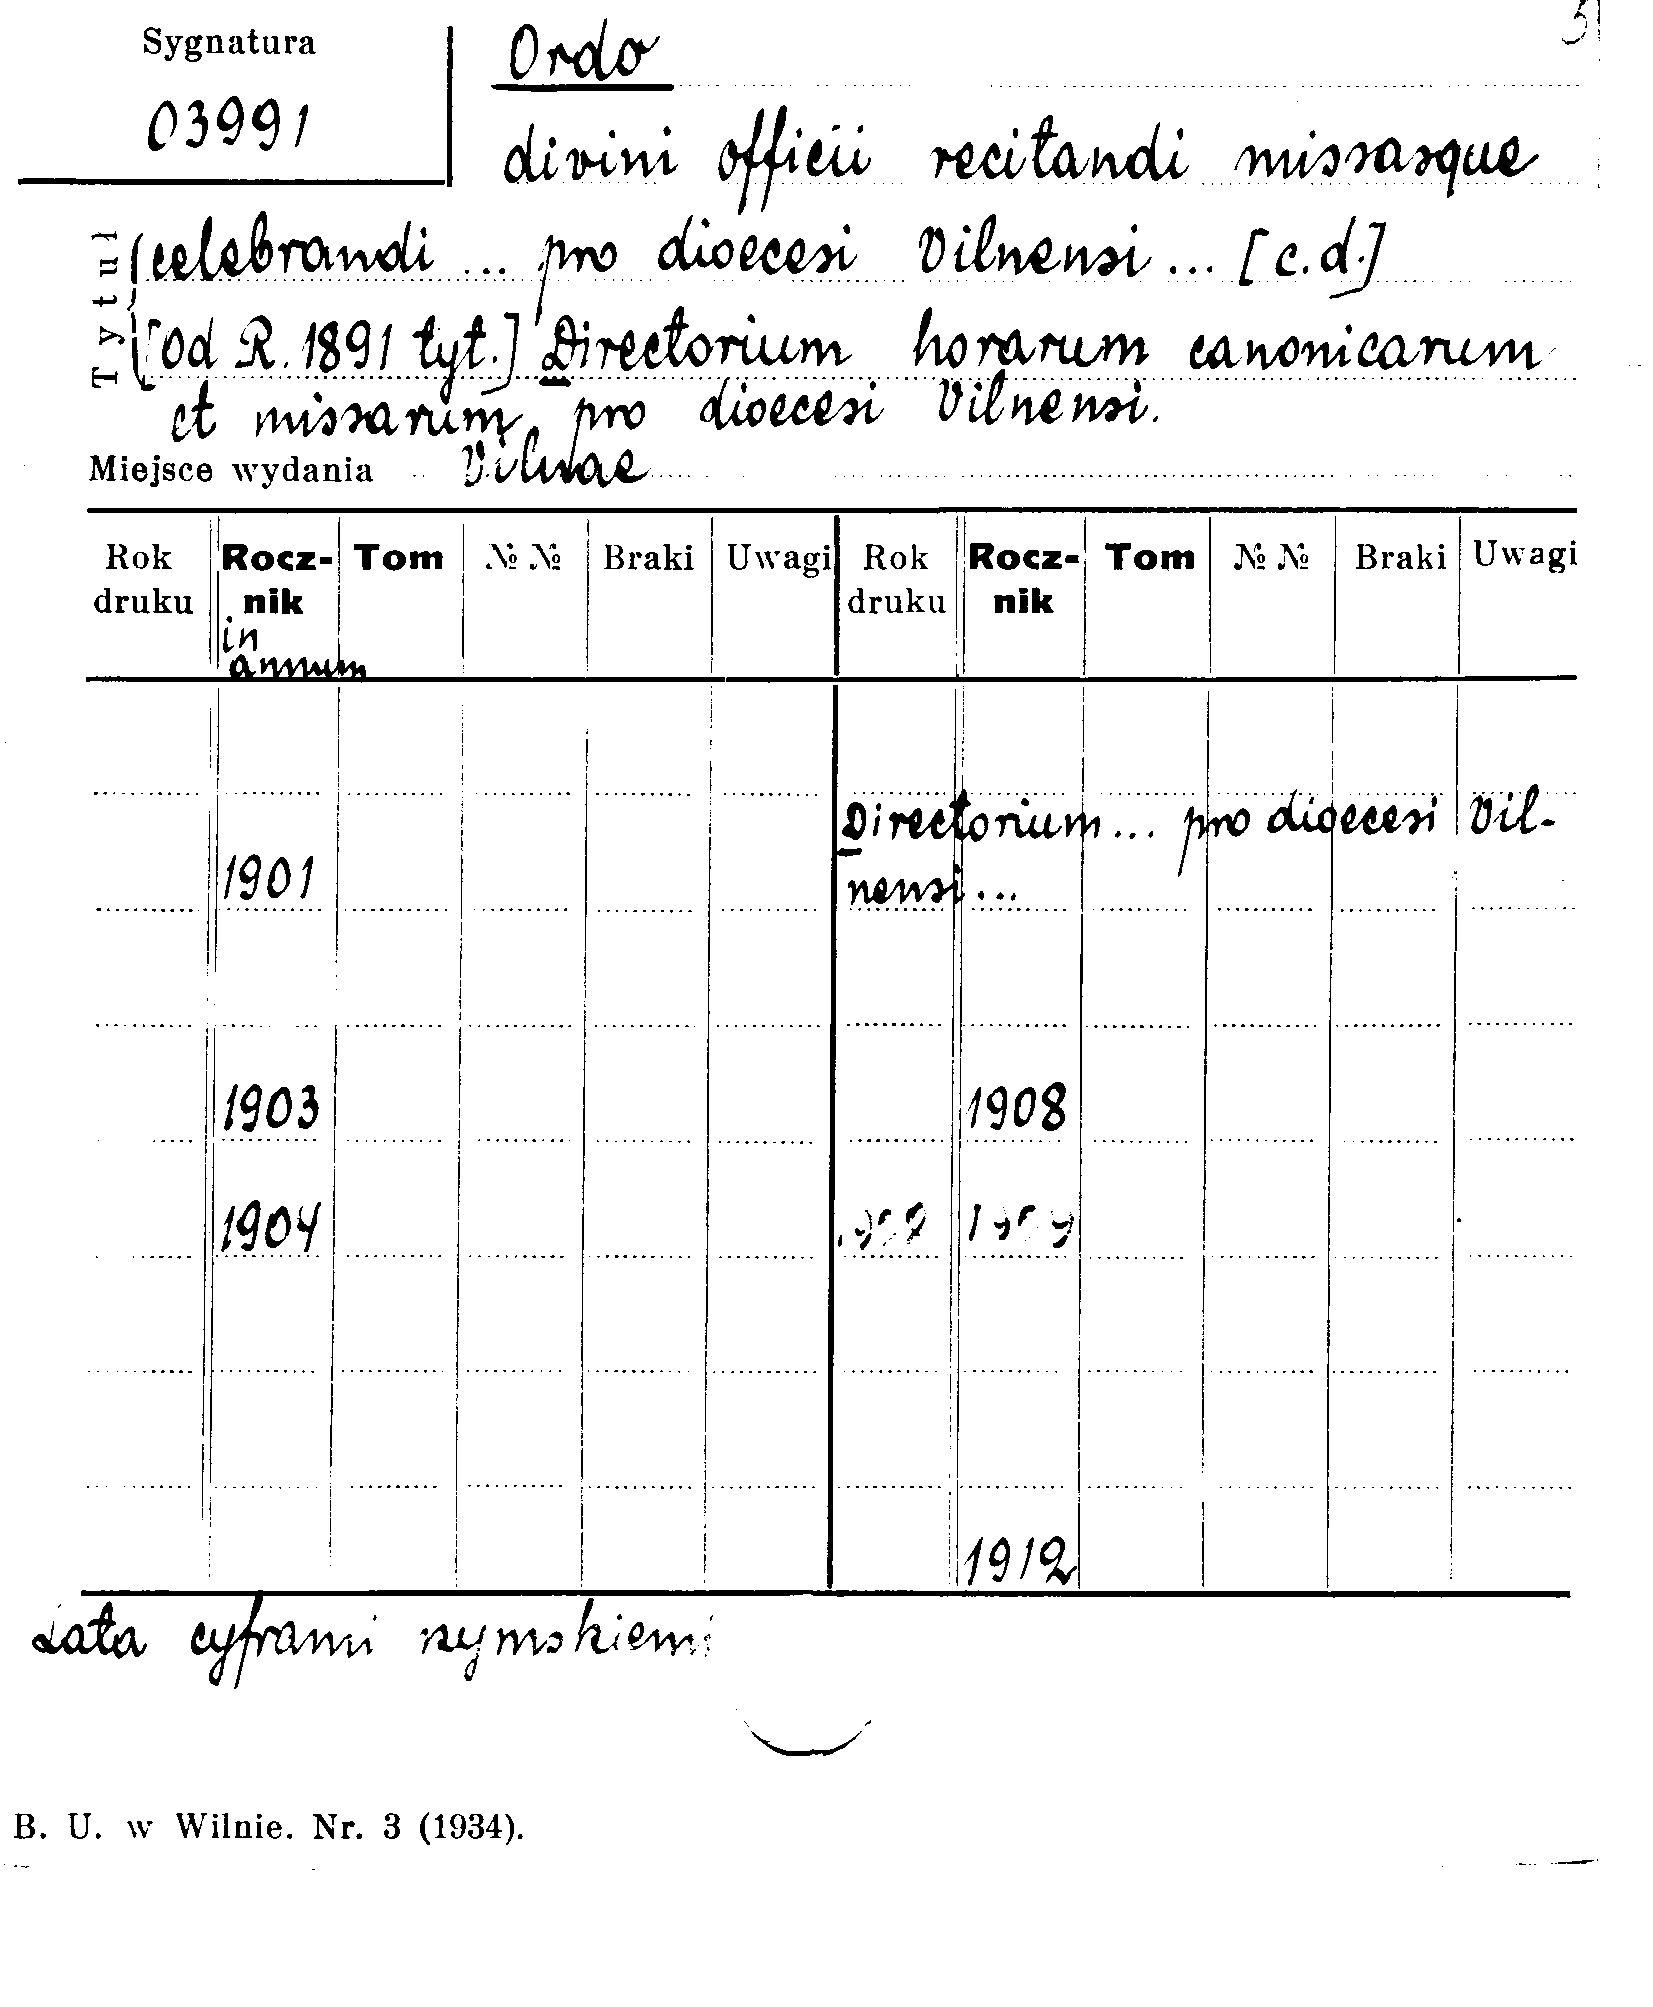 Sygnatura
03991
Ordo
divini officii recitandi missasque
celebrandi ... pro dioecesi Vilnensi ... [c.d.]
[Od R. 1891 tyt.] Directorium horarum canonicarum
et missarum pro dioecesi Vilnensi.
Tytuł
Miejsce wydania Vilnae
Rok druku Rocznik Tom № № Braki Uwagi Rok druku Rocznik Tom № № Braki Uwagi
in
annum
Directorium ... pro dioecesi Vil-
1901 nensi ...
1903 1908
1904
1912
Lata cyframi rzymskiemi
B. U. w Wilnie. Nr. 3 (1934).